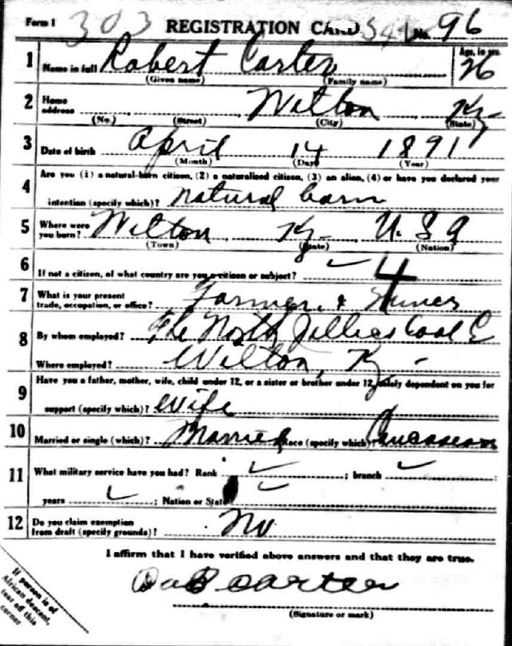 Form 1 303 REGISTRATION CARD No. 96
1 Name in full Robert Carter Age, in yrs. 26
(Given name) (Family name)
2 Home address Wilton Ky
(No.) (Street) (City) (State)
3 Date of birth April 14 1891
(Month) (Day) (Year)
4 Are you (1) a natural-born citizen, (2) a naturalized citizen, (3) an alien, (4) or have you declared your
intention (specify which)? natural born
5 Where were you born? Wilton Ky U. S A
(Town) (State) (Nation)
6 If not a citizen, of what country are you a citizen or subject? ✓ 4
7 What is your present trade, occupation, or office? Farmer &
8 By whom employed? The North Jellico Coal C
Where employed? Wilton, Ky -
9 Have you a father, mother, wife, child under 12, or a sister or brother under 12, solely dependent on you for
support (specify which)? wife
10 Married or single (which)? Married Race (specify which)? Caucasian
11 What military service have you had? Rank ✓ ; branch ✓ ;
years ✓ ; Nation or State ✓
12 Do you claim exemption from draft (specify grounds)? No
I affirm that I have verified above answers and that they are true.
Carter
(Signature or mark)
If person is of
African descent,
tear off this
corner